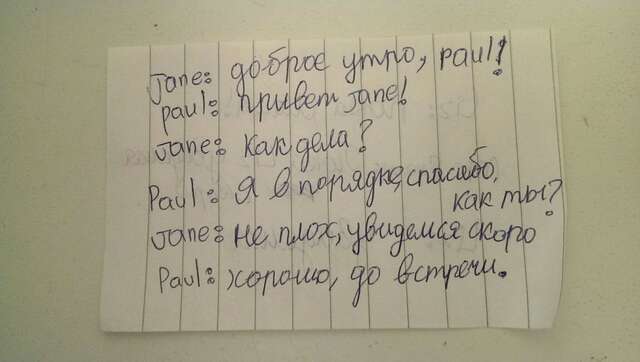 Jane: доброе утро, Paul!
Paul: привет Jane!
Jane: Как дела?
Paul: Я в порядке, спасибо,
как ты?
Jane: не плох, увидемся скоро
Paul: хорошо, до встречи.